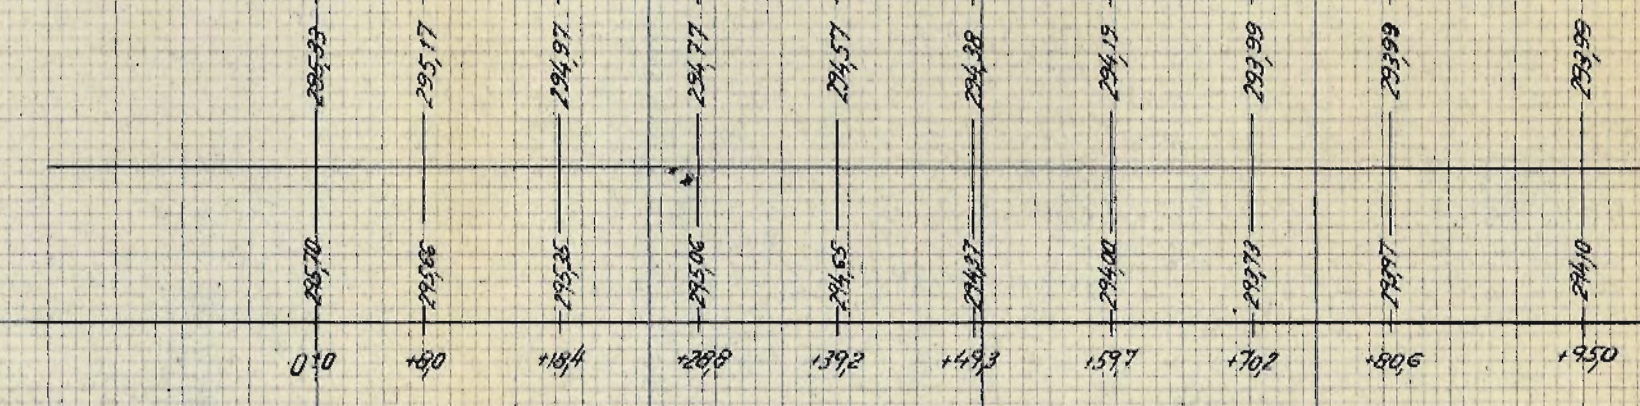 295,33 295,17 294,97 294,77 294,57 294,38 294,19 293,99 293,99 293,99
295,70 295,66 295,35 295,06 294,65 294,37 294,00 293,73 293,97 294,10
0+0 +8,0 +18,4 +28,8 +39,2 +49,3 +59,7 +70,2 +80,6 +95,0